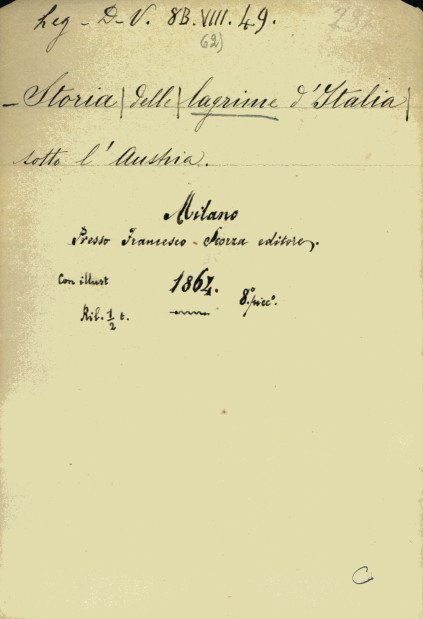 Leg - D - V. 8B. VIII. 49.
62)
- Storia | delle | lagrime d'Italia |
sotto l'Austria.
Milano
Presso Francesco - Scorza editore.
Con illust 1864. 8.° picc.°
Ril. 1/2 t.
C